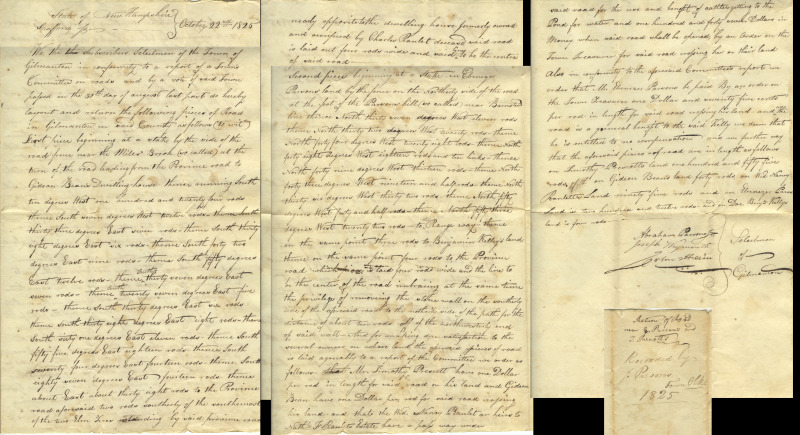 State of New Hampshire
Strafford Ss October 22nd 1825
We the Subscribers Selectmen of the Town of
Gilmanton in conformity to a report of a Town
Committee on roads and by a vote of said Town
passed in the 30th day of august last past do hereby
layout and return the following pieces of Road
in Gilmanton in said County as follows (to wit)
First piece beginning at a stake by the side of the
road passing near the Mill Brook (so called) at the
turn of the road leading from the Province road to
Gideon Beans Dwelling house - thence running South
ten degrees West one hundred and twenty four rods
thence South seven degrees West twelve rods - thence South
thirty three degrees East seven rods - thence South thirty
eight degrees East six rods - thence South forty two
degrees East nine rods - thence South fifty degrees
East twelve rods - thence South thirty seven degrees East
seven rods - thence South twenty degrees East five
rods - thence South thirty degrees East six rods
thence South thirty eight degrees East eight rods - thence
South sixty one degrees East eleven rods - thence South
fifty five degrees East eighteen rods - thence South
seventy five degrees East fourteen rods - thence South
eighty seven degrees East fourteen rods - thence
East about thirty eight rods to the Province
road aforesaid two rods southerly of the southernmost
of the two Elm Trees standing by said province road
nearly opposite the dwelling house formerly owned
and occupied by Charles Parslet deceased said road
is laid out four rods wide and said to be the centre
of said road
Second piece beginning at a stake in Ebenezer
Parsons land by the fence on the Northerly side of the road
at the foot of the Parsons hill (so called) near Burnt
thence North thirty seven degrees West seven rods
thence North thirty two degrees West twenty rods - thence
North forty four degrees West twenty eight rods - thence North
forty eight degrees West eighteen rods and ten links - thence
North forty nine degrees West thirteen rods - thence North
forty three degrees West nineteen and half rods - thence North
thirty six degrees West thirty two rods - thence North fifty
degrees West forty and half rods - thence North fifty three
degrees West twenty two rods - to Range way - thence
on the same point three rods to Benjamin Kelleys land
thence on the same point four rods to the Province
road is laid four rods wide and the line to
be the centre of the road embracing at the same time
the privilege of removing the stone wall on the southerly
side of the aforesaid road to the outside side of the path for the
distance of about ten rods off of the northwesterly end
of said wall - And for making due satisfaction to the
several owners on whose land the aforesaid pieces of road
is laid agreeably to a report of the Committee we order as
follows - that Mr Timothy Prescott have one Dollar
per rod in length for said road on his land and Gideon
Bean have one Dollar per rod for said road crossing
his land and that the Wid. Nancy Parslet or heirs to
Estate have a pass way under
said road for the use and benefit of cattle getting to the
Pond for water and one hundred and forty seven Dollars in
Money when said road shall be opened by an order on the
Town Treasurer for said road crossing her or their land
Also in conformity to the aforesaid Committees report we
order that Mr Ebenezer Parsons be paid By an order on
the Town Treasurer one Dollar and seventy five cents
per rod in length for said road crossing his land and the
road is a general benefit to the said Kelley we mean that
he is entitled to no compensation and we further say
that the aforesaid pieces of road are in length as follows
on Timothy Prescotts land one hundred and fifty five
rods off of on Gideon Beans land forty rods on Wid. Nancy
Parslets Land ninety five rods and on Ebenezer Parsons
Land is two hundred and twelve rods and on Benj. Kelleys
land is four rods
Abraham Parsons
Joseph
John Ham
Selectmen
of
Gilmanton
Return of Road
near E Parsons and
T Prescotts
Recorded By
J Parsons
T Clk
1825